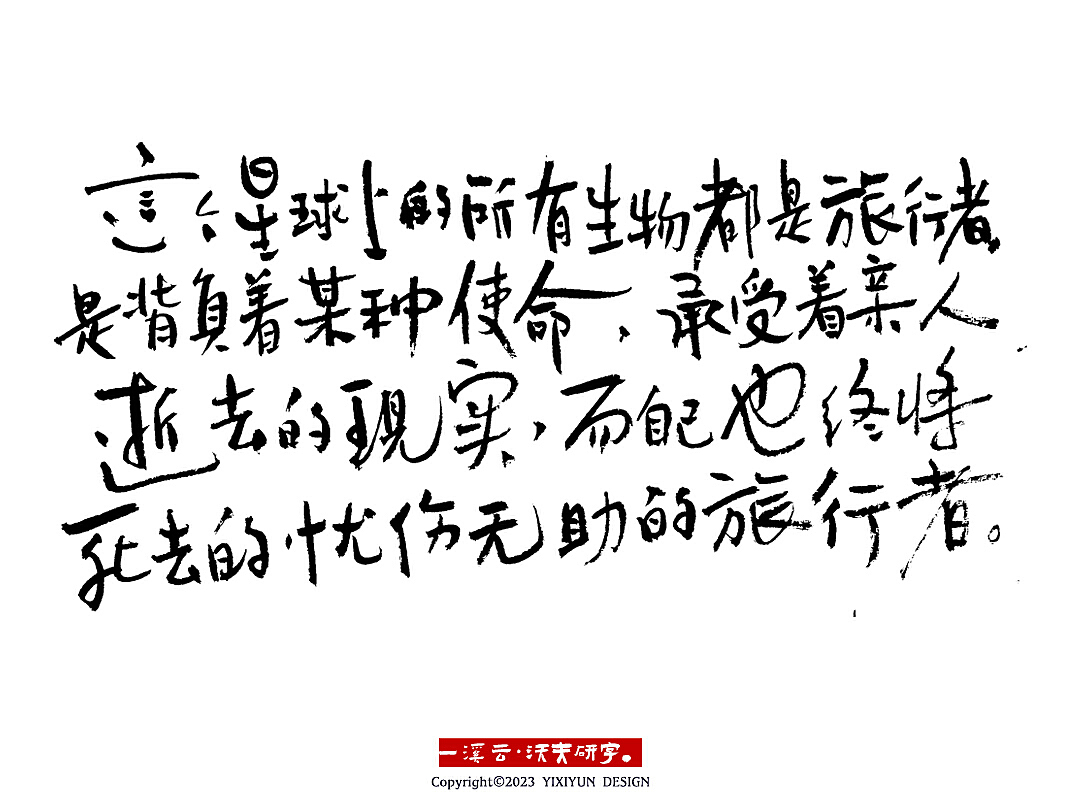 这个星球上的所有生物都是旅行者,
是背負着某种使命,承受着亲人
逝去的现实,而自己也终将
死去的忧伤无助的旅行者。
一溪云·沃夫研字。
Copyright©2023 YIXIYUN DESIGN